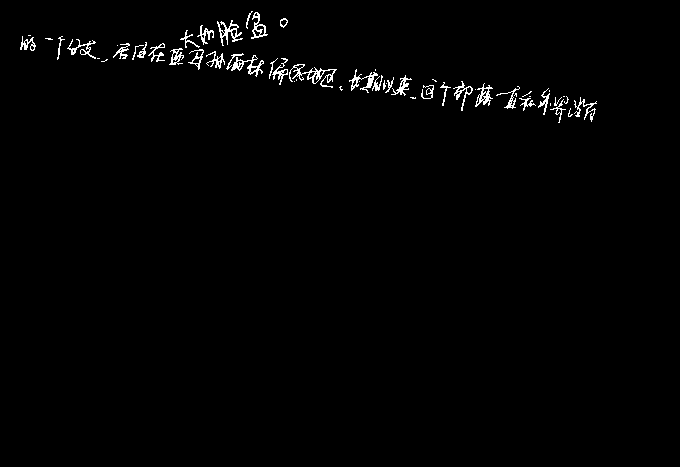 大如脸盆。
的一个分支,居住在亚马孙雨林偏远地区,长期以来,这个部落一直和外界没有